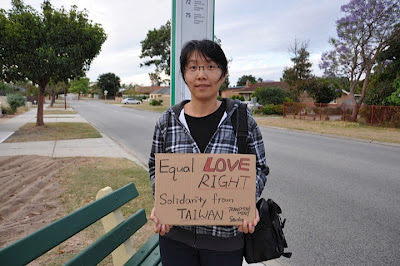 72
75
Equal LOVE
RIGHT
Solidarity from
TAIWAN